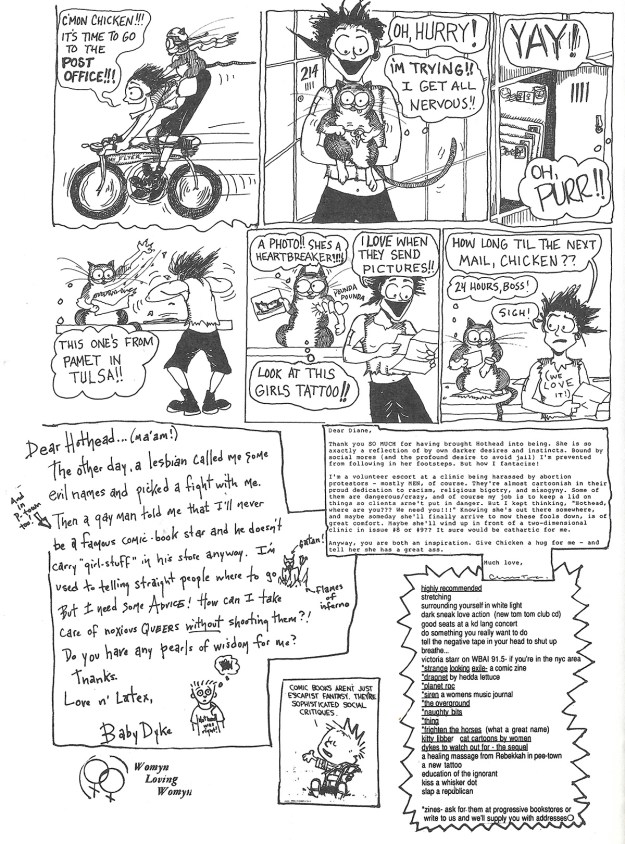 C'MON CHICKEN!!!
IT'S TIME TO GO
TO THE
POST
OFFICE!!!
MY FLYER
OH, HURRY!
I'M TRYING!!
I GET ALL
NERVOUS!!
214
YAY!!
OH,
PURR!!
THIS ONE'S FROM
PAMET IN
TULSA!!
A PHOTO!! SHE'S A
HEARTBREAKER!!!!
POUNDA
POUNDA
I LOVE WHEN
THEY SEND
PICTURES!!
LOOK AT THIS
GIRLS TATTOO!!
HOW LONG TIL THE NEXT
MAIL, CHICKEN??
24 HOURS, BOSS!
SIGH!
(WE
LOVE
IT!)
Dear Hothead... (ma'am!)
The other day, a lesbian called me some
evil names and picked a fight with me.
Then a gay man told me that I'll never
be a famous comic-book star and he doesn't
carry "girl-stuff" in his store anyway. I'm
used to telling straight people where to go
But I need some ADVICE! How can I take
care of noxious QUEERS without shooting them?!
Do you have any pearls of wisdom for me?
Thanks.
Love n' Latex,
Baby Dyke
And
in
too!
Satan!
flames
of
inferno
Hothead
was
right!
Womyn
Loving
Womyn
Dear Diane,
Thank you SO MUCH for having brought Hothead into being. She is so
exactly a reflection of my own darker desires and instincts. Bound by
social mores (and the profound desire to avoid jail) I'm prevented
from following in her footsteps. But how I fantacise!
I'm a volunteer escort at a clinic being harassed by abortion
protestors - mostly MEN, of course. They're almost cartoonish in their
proud dedication to racism, religious bigotry, and misogyny. Some of
them are dangerous/crazy, and of course my job is to keep a lid on
things so clients aren't put in danger. But I kept thinking, "Hothead,
where are you??? We need you!!!" Knowing she's out there somewhere,
and maybe someday she'll finally arrive to mow these fools down, is of
great comfort. Maybe she'll wind up in front of a two-dimensional
clinic in issue #8 or #9?? It sure would be cathartic for me.
Anyway, you are both an inspiration. Give Chicken a hug for me - and
tell her she has a great ass.
Much love,
COMIC BOOKS AREN'T JUST
ESCAPIST FANTASY. THEY'RE
SOPHISTICATED SOCIAL
CRITIQUES.
highly recommended
stretching
surrounding yourself in white light
dark sneak love action (new tom tom club cd)
good seats at a kd lang concert
do something you really want to do
tell the negative tape in your head to shut up
breathe...
victoria starr on WBAI 91.5- if you're in the nyc area
*strange looking exile- a comic zine
*dragnet by hedda lettuce
*planet roc
*siren a womens music journal
*the overground
*naughty bits
*thing
*frighten the horses (what a great name)
kitty libber cat cartoons by women
dykes to watch out for - the sequel
a healing massage from Rebekkah in pee-town
a new tattoo
education of the ignorant
kiss a whisker dot
slap a republican
*zines- ask for them at progressive bookstores or
write to us and we'll supply you with addresses